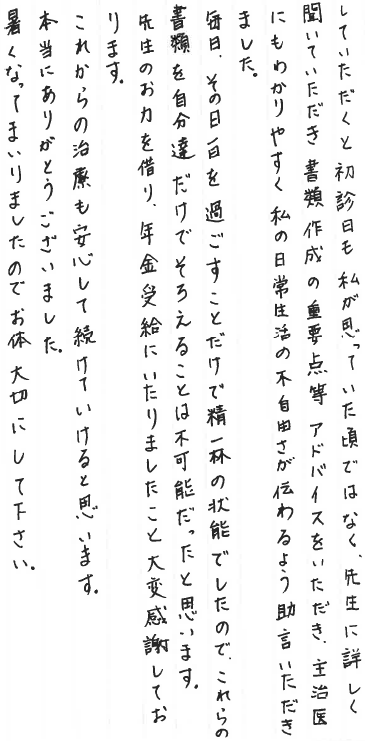 していただくと初診日も私が思っていた頃ではなく、先生に詳しく
聞いていただき書類作成の重要点等アドバイスをいただき、主治医
にもわかりやすく私の日常生活の不自由さが伝わるよう助言いただき
ました。
毎日、その日一日を過ごすことだけで精一杯の状態でしたので、これらの
書類を自分達だけでそろえることは不可能だったと思います。
先生のお力を借り、年金受給にいたりましたこと大変感謝してお
ります。
これからの治療も安心して続けていけると思います。
本当にありがとうございました。
暑くなってまいりましたのでお体大切にして下さい。